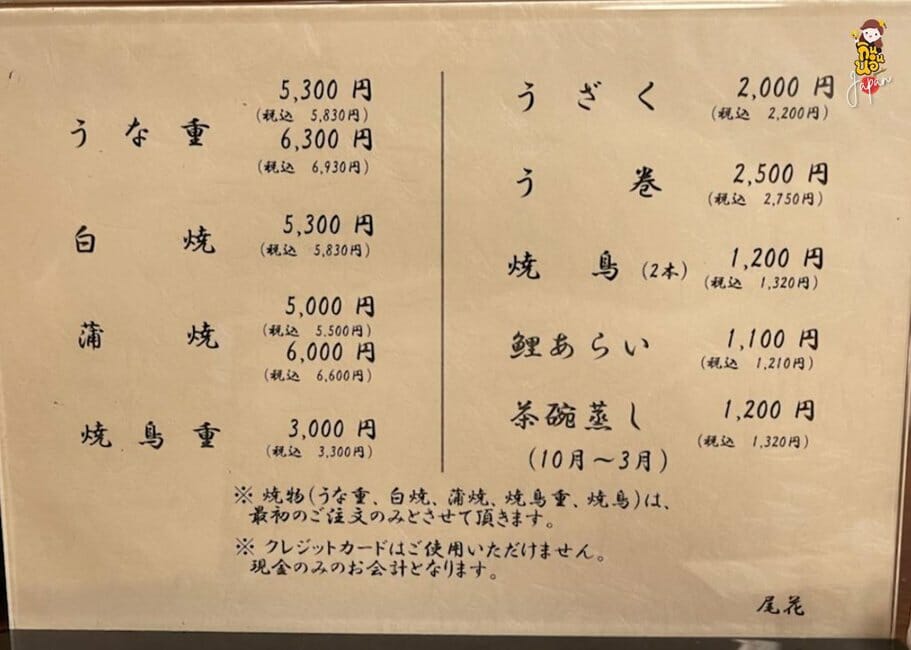 うな重
5,300 円
(税込 5,830円)
6,300 円
(税込 6,930円)
白焼
5,300 円
(税込 5,830円)
蒲焼
5,000 円
(税込 5,500円)
6,000 円
(税込 6,600円)
焼鳥重
3,000 円
(税込 3,300円)
うざく
2,000 円
(税込 2,200円)
う巻
2,500 円
(税込 2,750円)
焼鳥(2本)
1,200 円
(税込 1,320円)
鯉あらい
1,100 円
(税込 1,210円)
茶碗蒸し
1,200 円
(税込 1,320円)
(10月～3月)
※ 焼物(うな重、白焼、蒲焼、焼鳥重、焼鳥)は、
最初のご注文のみとさせて頂きます。
※ クレジットカードはご使用いただけません。
現金のみのお会計となります。
尾花
กิน
นอน
Japan